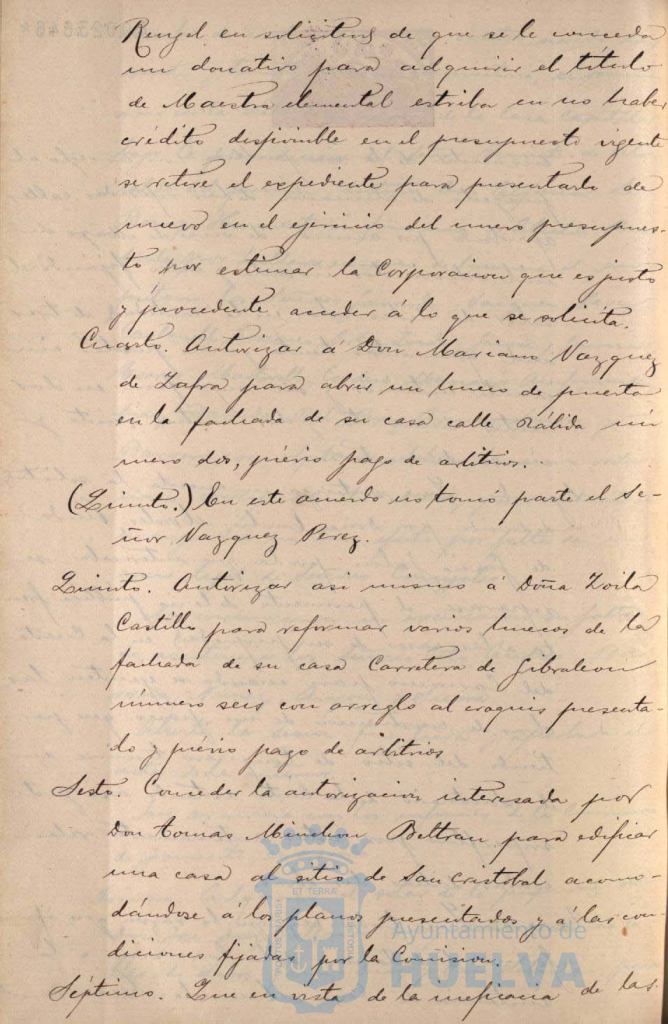 Rengel en solicitud de que se le conceda
un donativo para adquirir el título
de Maestra elemental estriba en no haber
crédito disponible en el presupuesto vigente
se retire el expediente para presentarlo de
nuevo en el ejercicio del nuevo presupues-
to por estimar la Corporacion que es justo
y procedente acceder á lo que se solicita.
Cuarto. Autorizar á Don Mariano Vazquez
de Zafra para abrir un hueco de puerta
en la fachada de su casa calle Rábida nú
mero dos, prévio pago de arbitrios.
(Quinto.) En este acuerdo no tomó parte el Se-
ñor Vazquez Perez.
Quinto. Autorizar asi mismo á Doña Zoila
Castillo para reformar varios huecos de la
fachada de su casa Carretera de Gibraleon
número seis con arreglo al croquis presenta-
do y prévio pago de arbitrios
Sesto. Conceder la autorizacion interesada por
Don Tomas Minchon Beltran para edificar
una casa al sitio de San Cristobal acomo-
dándose á los planos presentados y á las con
diciones fijadas por la Comision.
Séptimo. Que en vista de la ineficacia de las
Ayuntamiento de
HUELVA